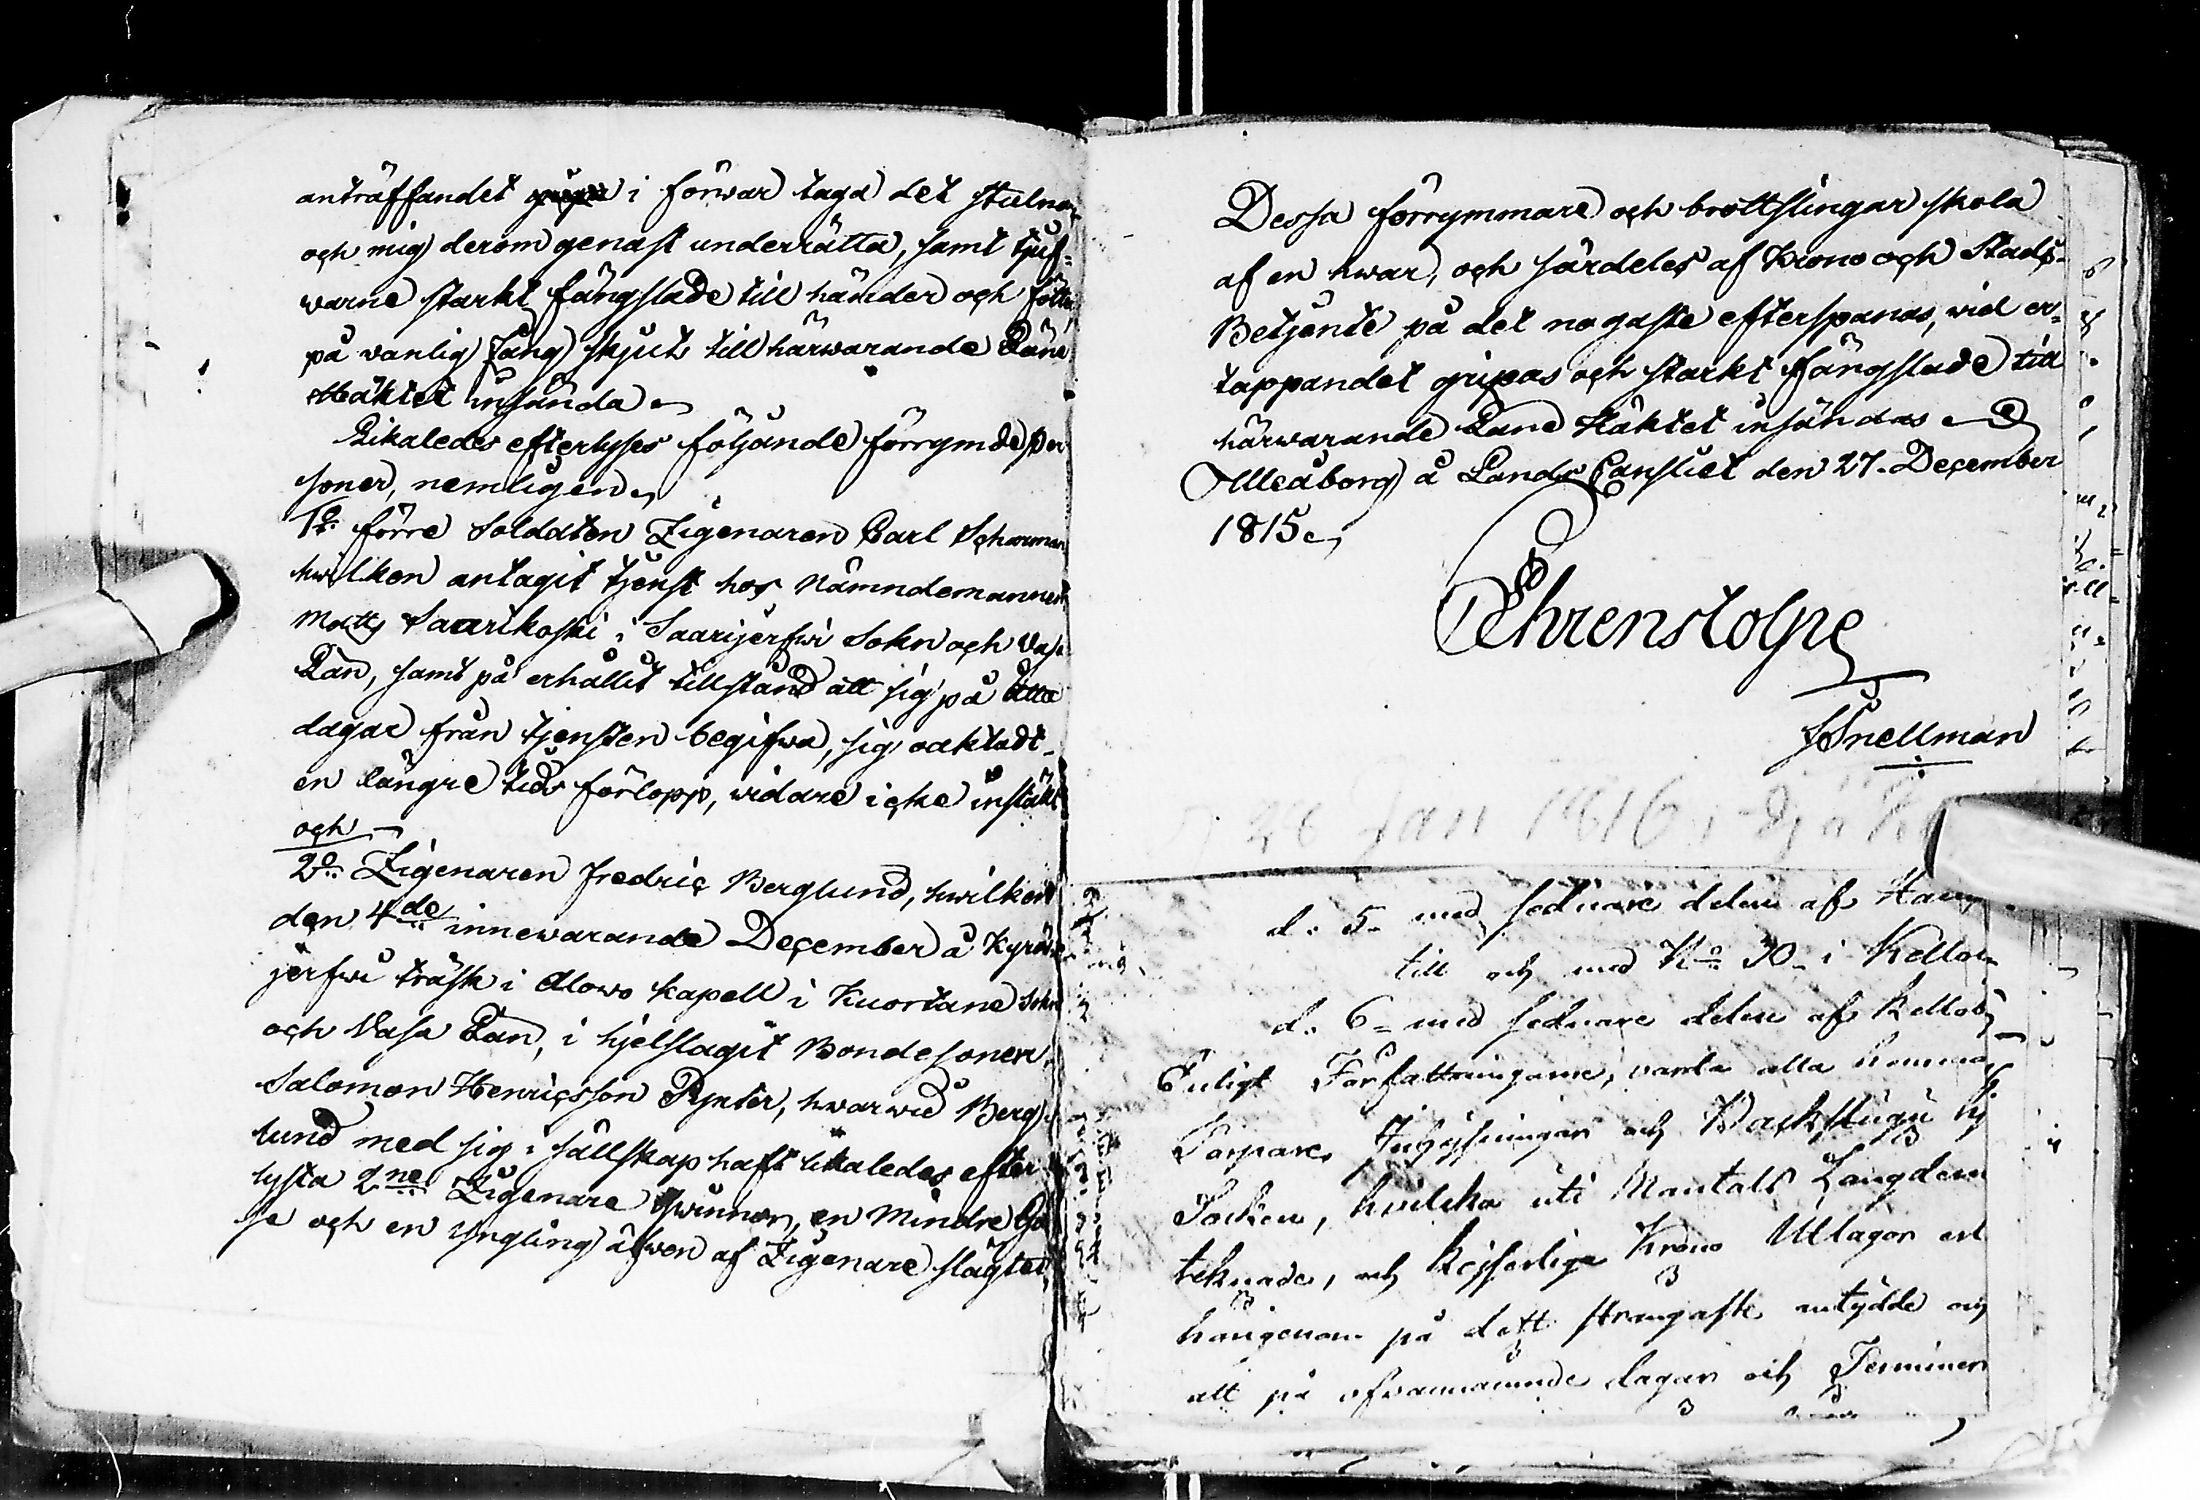 anträffandet i förwar taga det stulna
och mig derom genast underrätta, samt tjuf-
warne starkt fängslade till händer och fötter
på vanlig fång skjuts till härwarande Läns
Häktet insända
Likaledes efterlyses följande förrymde per
soner, nemligen
1o förre Soldaten Zigenaren Carl Scharman
hwilken antagit tjenst hos Nämndemannen
Matts Saarikoski i Saarijerfwi Sokn och Vasa
Län, samt på erhållit tillstånd att sig på åtta
dagar från tjensten begifwa, sig oaktadt
en längre tids förlopp, widare icke inställt
och
2o Zigenaren Fredric Berglund, hwilken
den 4de innewarande December å Kyrö
jerfwi träsk i Alawo kapell i Kuortane Sokn
och Vasa Län, i hjelslagit Bondesonen
Salomon Henricsson Rynter, hwarwid Berg-
lund med sig i sällskap haft likaledes efter
lysta 2ne Zigenare qwinnor, en Mindre Gås
se och en yngling äfwen af Zigenare slägtet
Dessa förrymmare och brottslingar skola
af en hwar, och särdeles af Krono och Stads-
Betjente på det nogaste efterspanas, vid er-
tappandet gripas och starkt fängslade till
härwarande Läns Häktet insändas
Uleåborg å Lands Cansliet den 27. December
1815
Ehrenstolpe
Snellman
28 Jan 1816
d: 5 med sednare delen af
till och med No 30 i Kello
d: 6 med sednare delen af Kello
Enligt Författningarne, varda alla hemman
Torpare, Inhysningar och Backstugu hj
Socken, hvilcka uti Mantals Längden
teknade, och Kejserliga Krono Utlagor erl
härigenom på dett strängaste antydde och
att på ofvannämnde dagar och Terminer